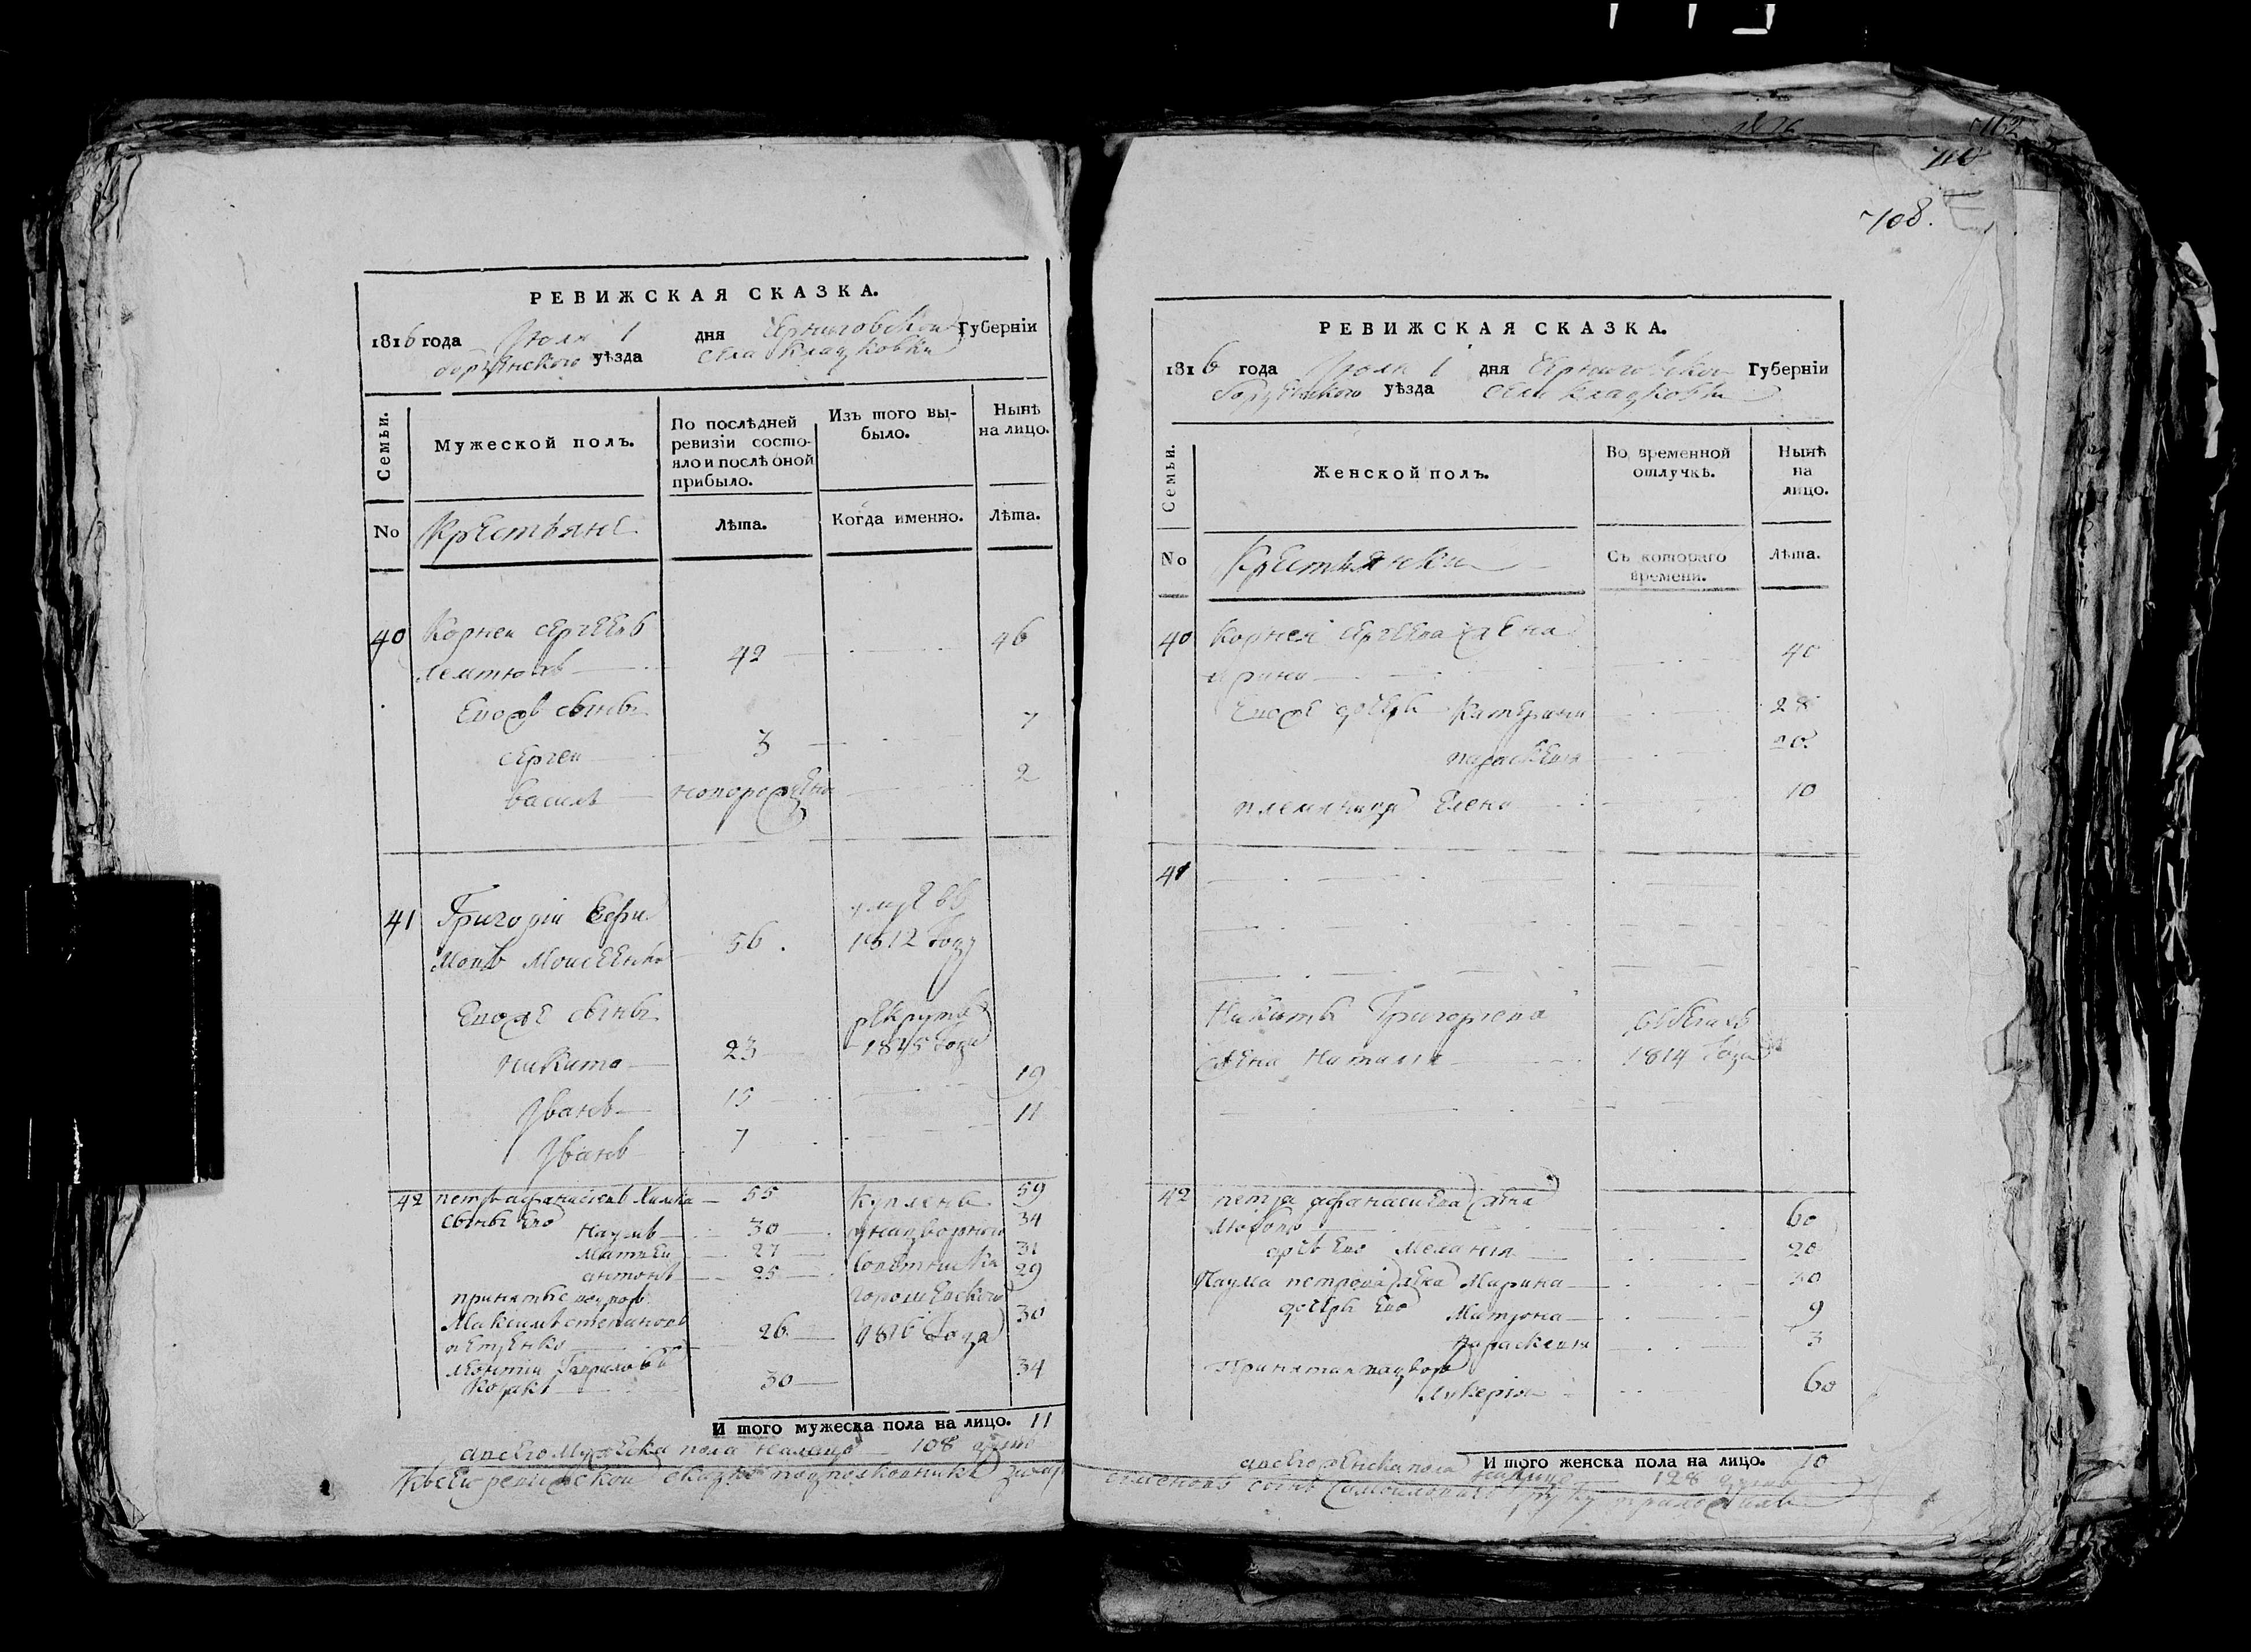 РЕВИЖСКАЯ СКАЗКА.
1816 года Июля 1 дня Черниговской Губерніи
уѣзда села Кладковки
Семьи.
Мужеской полъ.
По послѣдней
ревизіи состо-
яло и послѣ оной
прибыло.
Изъ того вы-
было.
Нынѣ
на лицо.
No
Крестьяне
Лѣта.
Когда именно.
Лѣта.
40 Корней Сергеевъ
42 46
Его же сыны
Сергей 3 7
Василь новорожденъ 2
41 Григорій Ефи
мовъ Моисеенко 56. умре въ 1812 году
Его же сыны
Никита 23 рекрутъ 1815 года
Иванъ 15 19
Иванъ 7 11
42 Петръ Афанасиевъ 55 куплены 59
сыны его Наумъ 30 у надворного 34
Матвей 27 советника 31
Антонъ 25 29
принятые
Максимъ Степановъ 26 1816 года 30
Леонтій Гавриловъ
Козакъ 30 34
И того мужеска пола на лицо. 11
а всего мужеска пола на лицо 108 душъ
К сей ревижской сказке подполковникъ Захар
112
708.
РЕВИЖСКАЯ СКАЗКА.
1816 года Июля 1 дня Черниговской Губерніи
уѣзда села Кладковки
Семьи.
Женской полъ.
Во временной
отлучкѣ.
Нынѣ
на
лицо.
No
Крестьянки
Съ котораго
времени.
Лѣта.
40 Корнея Сергеева жена
Ирина 40
Его же дочери Катерина 28
Параскевия 20
племянница Елена 10
41
Никиты Григориева
жена Наталия 1814 года
42 Петра Афанасиева жена
60
дочь его Мелания 20
Наума Петрова жена Марина 30
дочери его Матрона 9
Параскевия 3
Принятая
Лукерія 60
И того женска пола на лицо. 10
а всего женска пола на лице 128 душъ
Семеновъ сынъ руку приложилъ